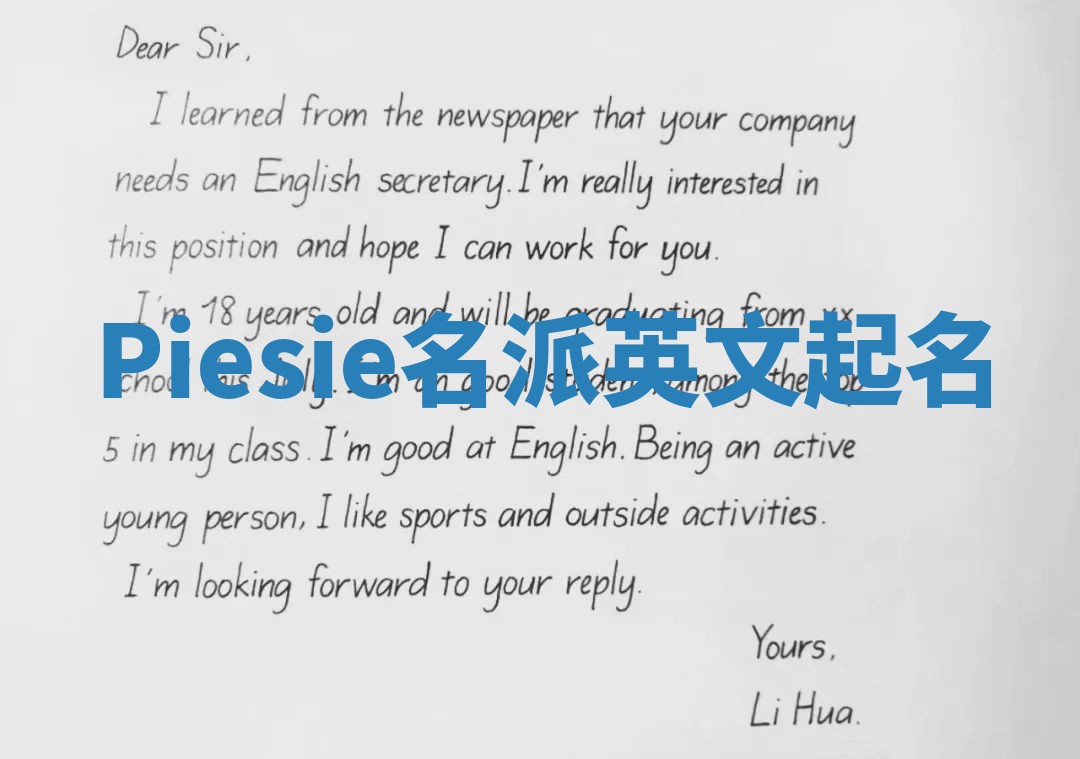 Dear Sir,
I learned from the newspaper that your company
needs an English secretary. I'm really interested in
this position and hope I can work for you.
I'm 18 years old and will be graduating from xx
Piesie名派英文起名
this July. I'm good student, among the top
5 in my class. I'm good at English. Being an active
young person, I like sports and outside activities.
I'm looking forward to your reply.
Yours,
Li Hua.